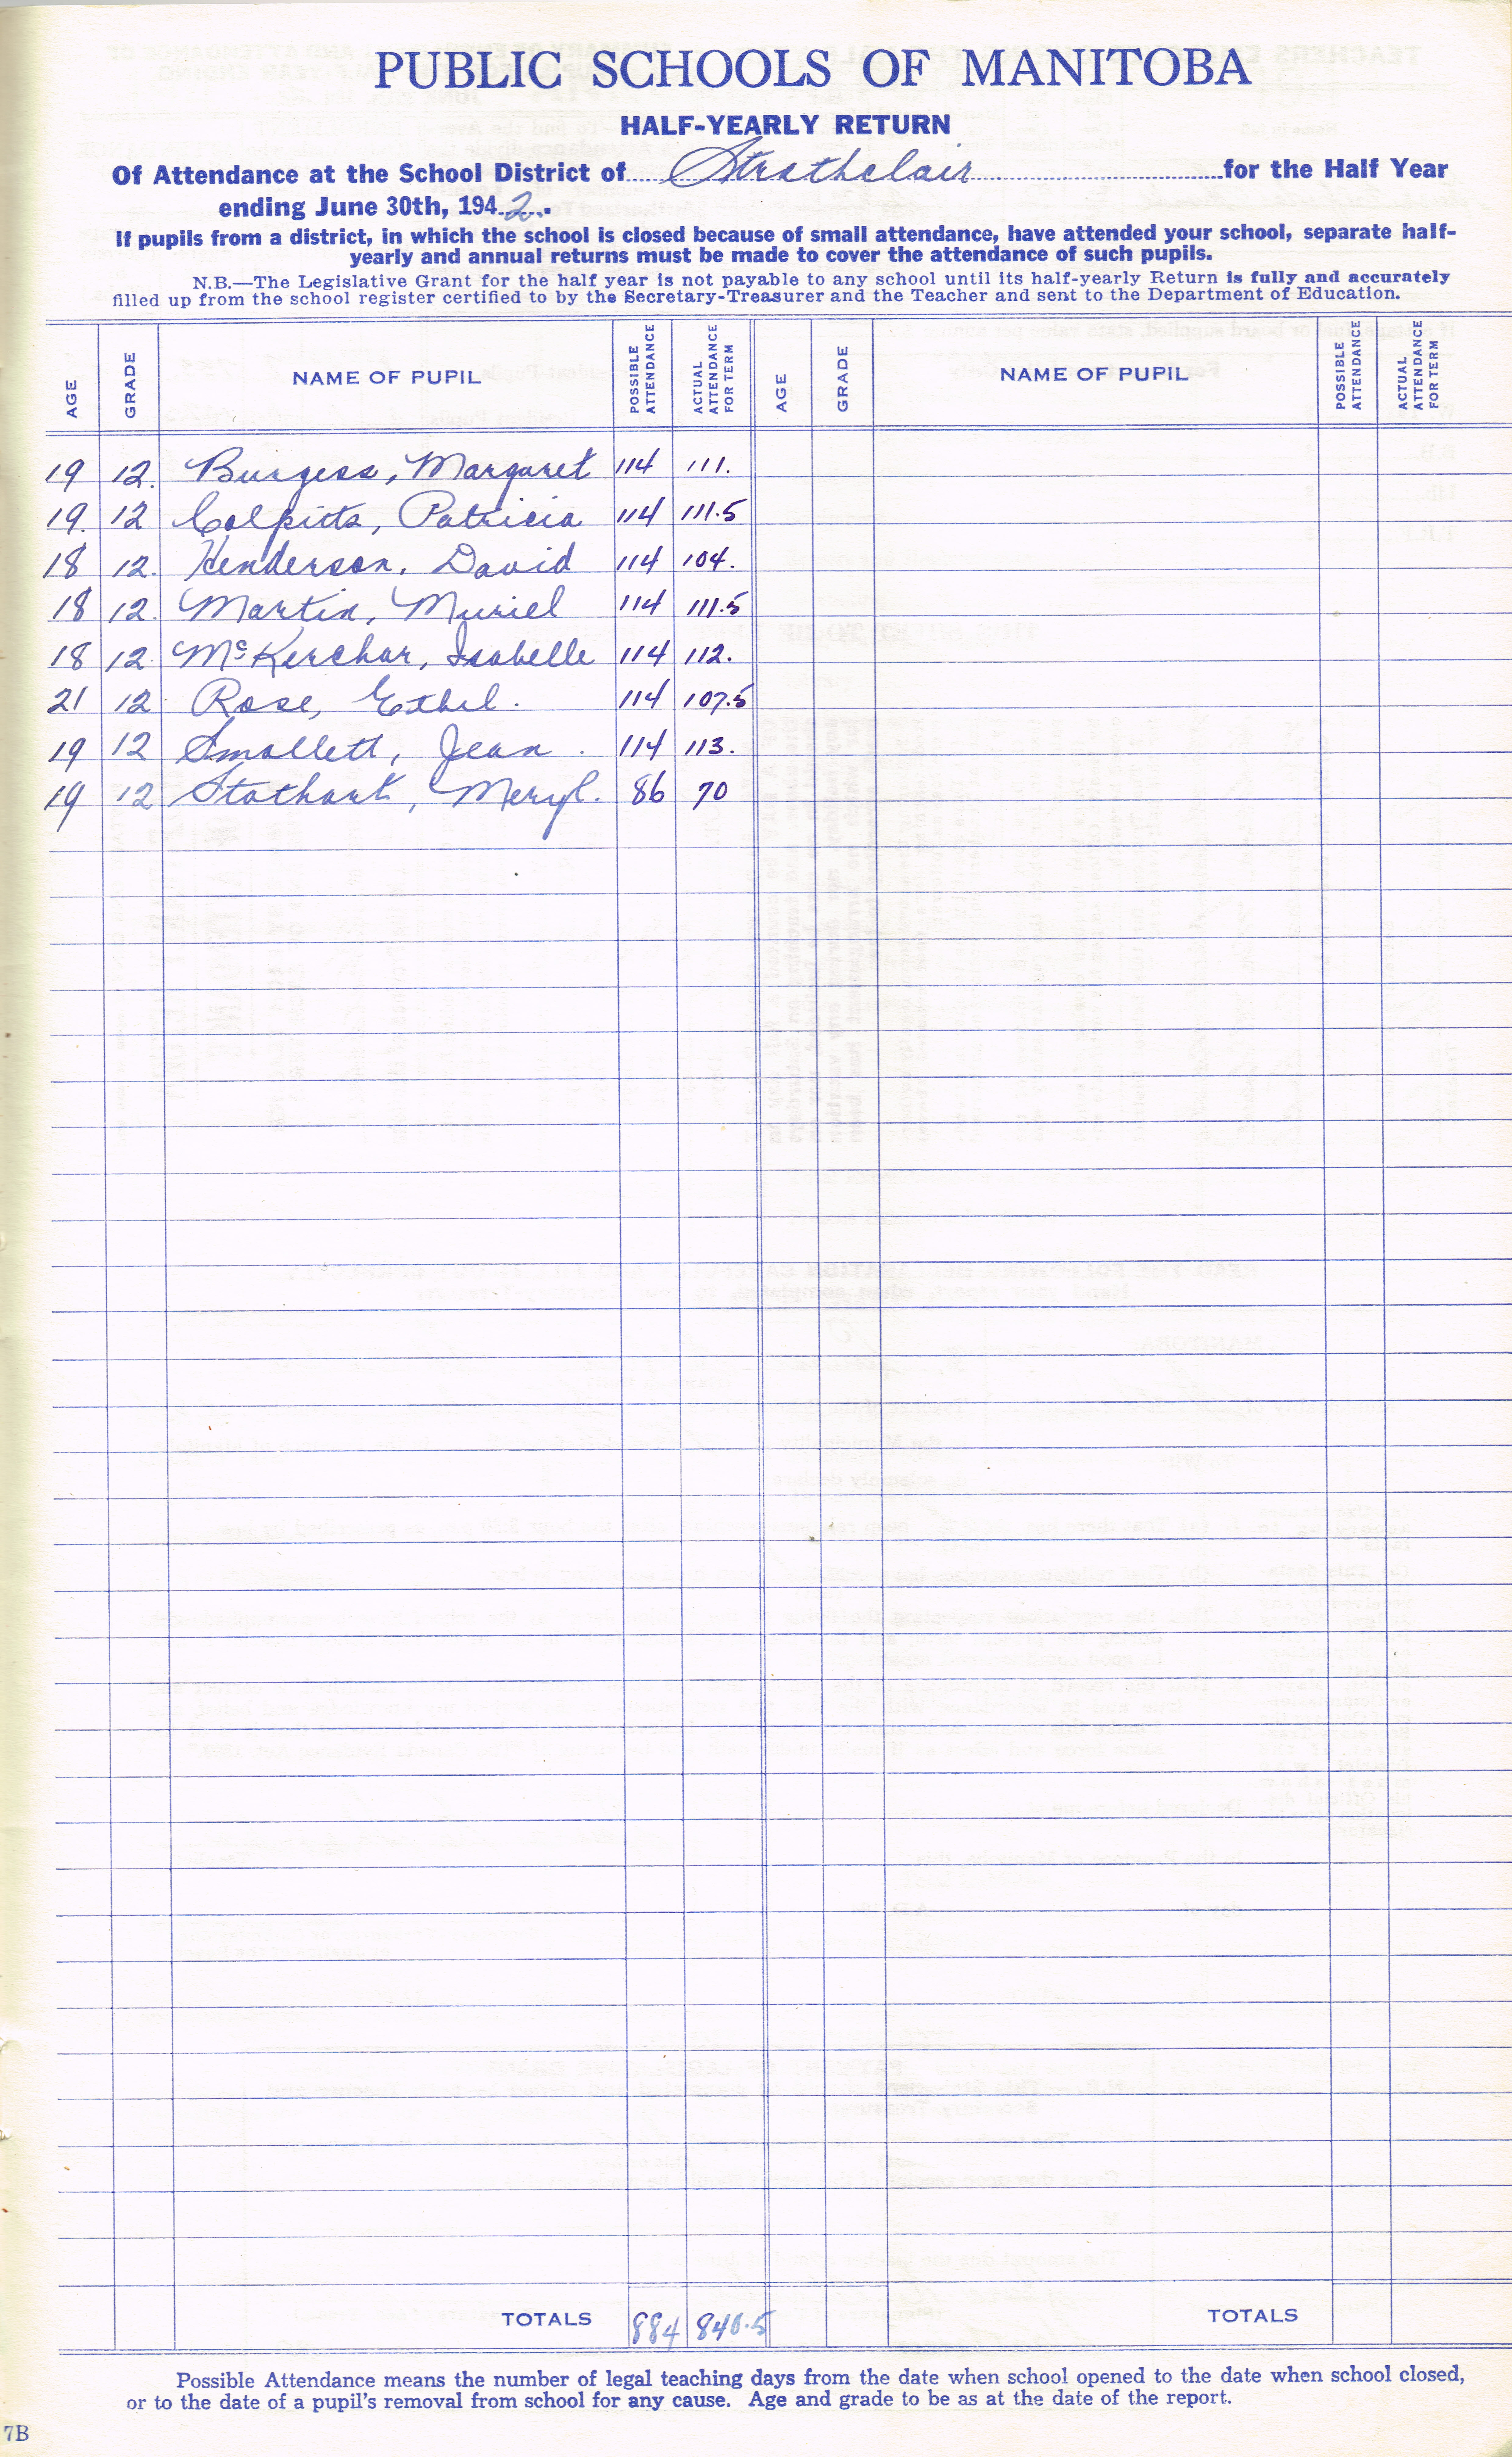 PUBLIC SCHOOLS OF MANITOBA
HALF-YEARLY RETURN
Of Attendance at the School District of Strathclair for the Half Year
ending June 30th, 1942.
If pupils from a district, in which the school is closed because of small attendance, have attended your school, separate half-
yearly and annual returns must be made to cover the attendance of such pupils.
N.B.—The Legislative Grant for the half year is not payable to any school until its half-yearly Return is fully and accurately
filled up from the school register certified to by the Secretary-Treasurer and the Teacher and sent to the Department of Education.
AGE GRADE NAME OF PUPIL POSSIBLE ATTENDANCE ACTUAL ATTENDANCE FOR TERM AGE GRADE NAME OF PUPIL POSSIBLE ATTENDANCE ACTUAL ATTENDANCE FOR TERM
19 12. Burgess, Margaret 114 111.
19. 12 Colpitts, Patricia 114 111.5
18 12. Henderson, David 114 104.
18 12. Martin, Muriel 114 111.5
18 12. McKerchar, Isabelle 114 112.
21 12 Rose, Ethel. 114 107.5
19 12 Smallett, Jean. 114 113.
19 12 Stothart, Meryl. 86 70
TOTALS 884 840.5 TOTALS
Possible Attendance means the number of legal teaching days from the date when school opened to the date when school closed,
or to the date of a pupil's removal from school for any cause. Age and grade to be as at the date of the report.
7B